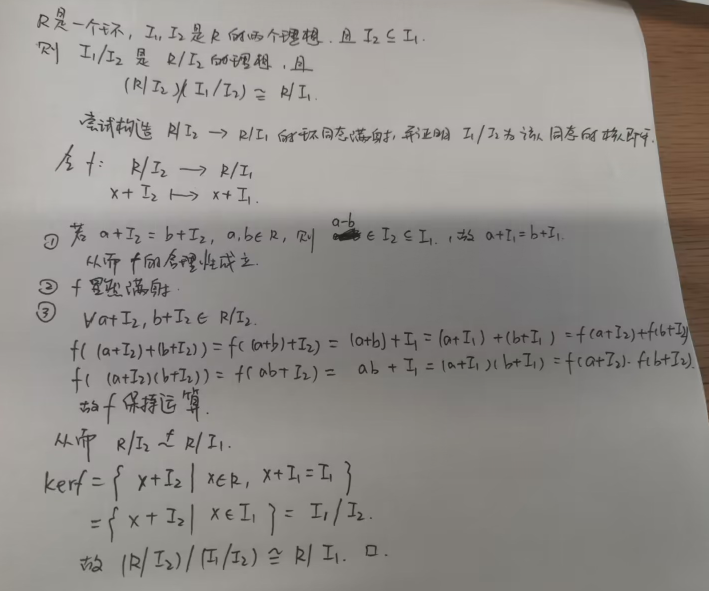 R是一个环, I₁, I₂是R的两个理想, 且 I₂ ⊆ I₁.
则 I₁/I₂ 是 R/I₂ 的理想, 且
(R/I₂)/(I₁/I₂) ≅ R/I₁.
尝试构造 R/I₂ → R/I₁ 的环同态满射, 并证明 I₁/I₂ 为该同态的核即可.
令 f: R/I₂ → R/I₁
x + I₂ ↦ x + I₁.
① 若 a + I₂ = b + I₂, a, b ∈ R, 则 a-b ∈ I₂ ⊆ I₁, 故 a + I₁ = b + I₁.
从而 f 的合理性成立.
② f 显然满射.
③ ∀ a + I₂, b + I₂ ∈ R/I₂.
f((a+I₂)+(b+I₂)) = f((a+b)+I₂) = (a+b)+I₁ = (a+I₁)+(b+I₁) = f(a+I₂)+f(b+I₂)
f((a+I₂)(b+I₂)) = f(ab+I₂) = ab+I₁ = (a+I₁)(b+I₁) = f(a+I₂)·f(b+I₂).
故 f 保持运算.
从而 R/I₂ ~ᶠ R/I₁.
Ker f = { x + I₂ | x ∈ R, x + I₁ = I₁ }
= { x + I₂ | x ∈ I₁ } = I₁/I₂.
故 (R/I₂)/(I₁/I₂) ≅ R/I₁. □.